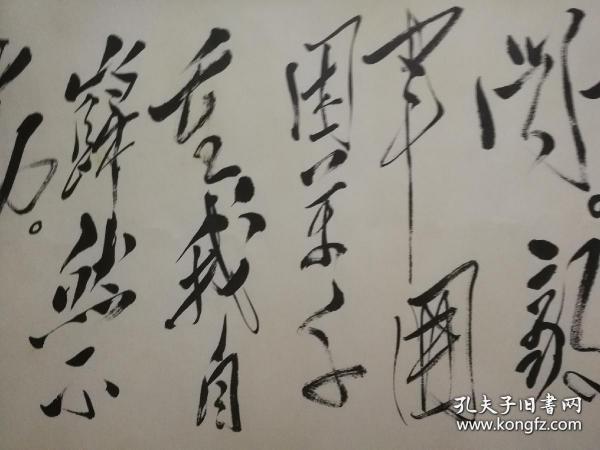 闻。敌
军围
困万千
重我自
岿然不
动。
孔夫子旧書网
www.kongfz.com